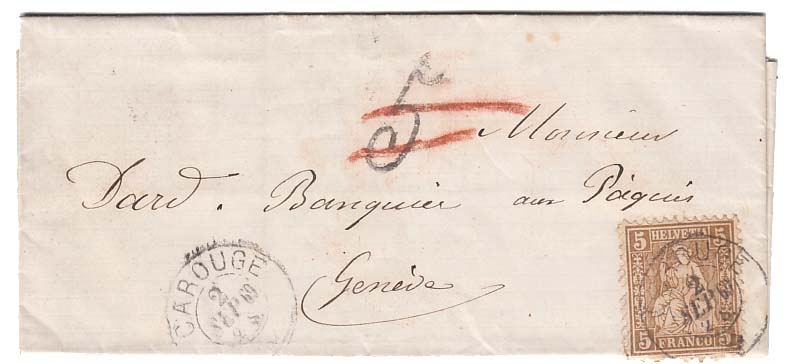 5
Monsieur
Dard. Banquier aux Pâquis
Genève
CAROUGE
2
SEP
5 HELVETIA 5
5 FRANCO 5
2
SEP